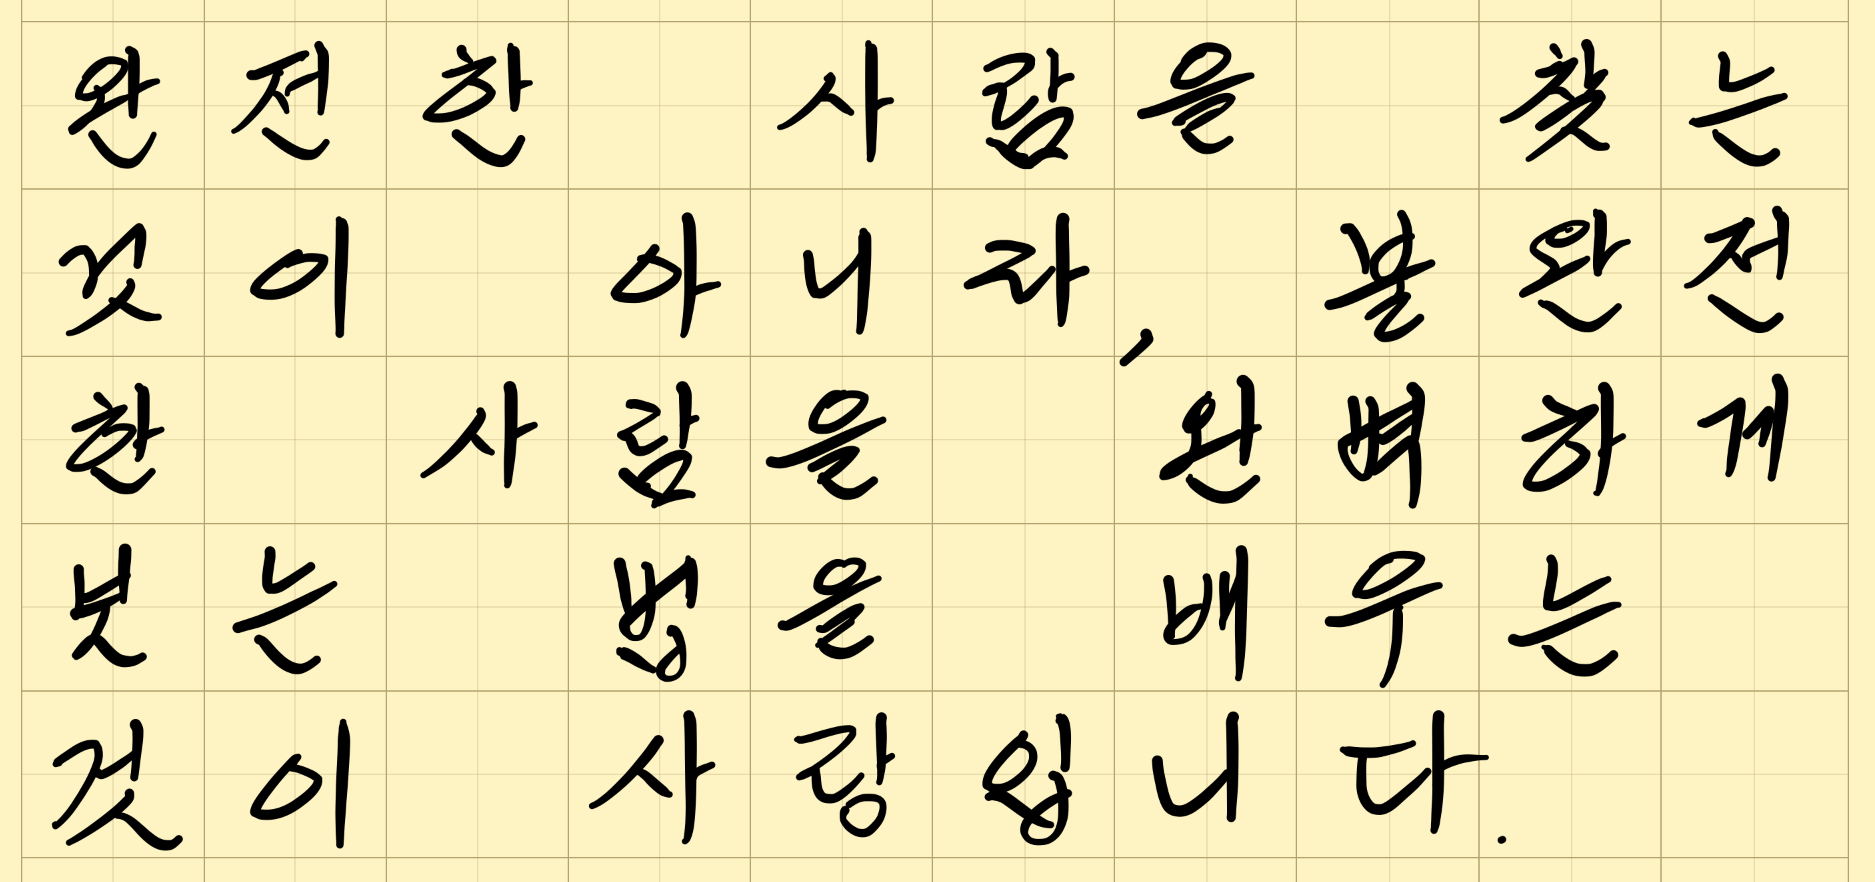 완전한 사람을 찾는
것이 아니라, 불완전
한 사람을 완벽하게
봇는 법을 배우는
것이 사랑입니다.